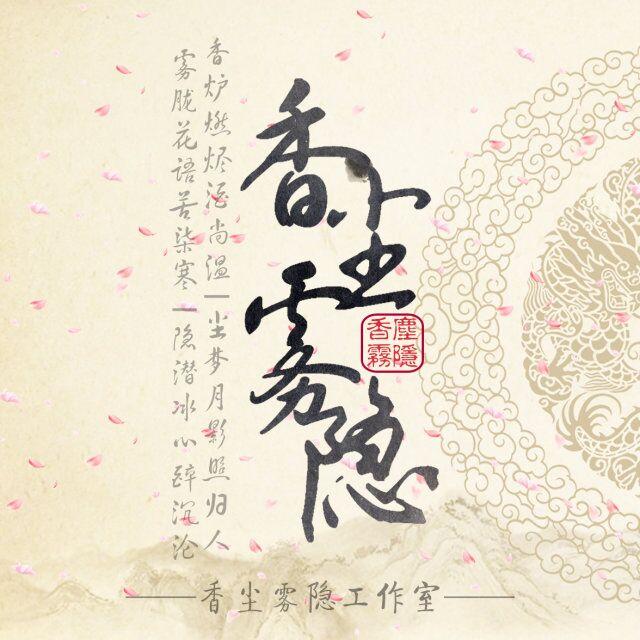 香炉燃烬酒尚温|尘梦月影照归人
雾胧花语苦柒寒|隐潜冰心醉沉沦
香尘雾隐
塵隱
香霧
香尘雾隐工作室